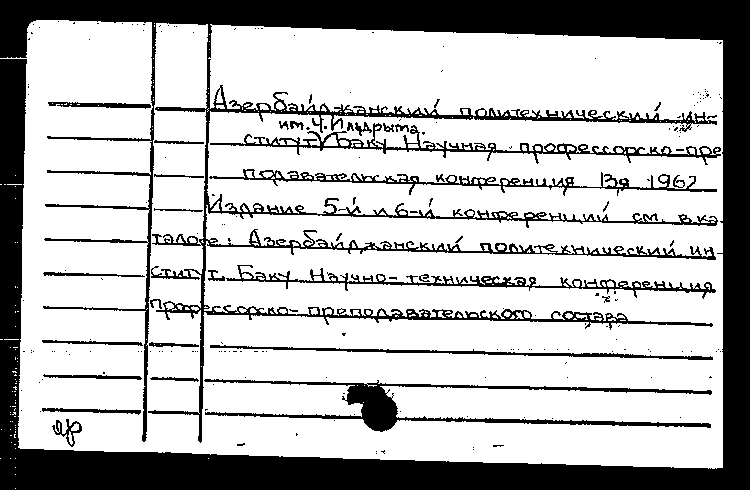 Азербайджанский политехнический ин-
им. Ч. Ильдрыма.
ститут Баку Научная профессорско-пре
подавательская конференция 13я 1962
Издание 5-й и 6-й конференций см. в ка
талоге: Азербайджанский политехнический ин-
ститут. Баку Научно-техническая конференция
профессорско-преподавательского состава